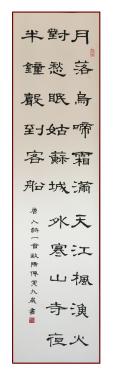 月落烏啼霜滿天江楓漁火
對愁眠姑蘇城外寒山寺夜
半鐘聲到客船
唐人詩一首歐陽九歲書